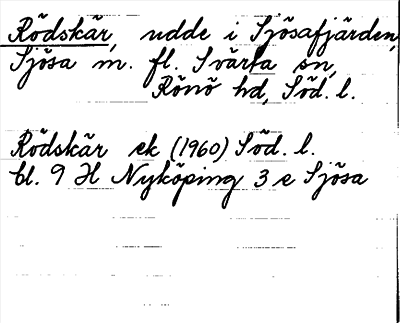 Rödskär, udde i Sjösafjärden,
Sjösa m. fl. Svärta sn,
Rönö hd, Söd. l.
Rödskär ek (1960) Söd. l.
bl. 9 H Nyköping 3 e Sjösa